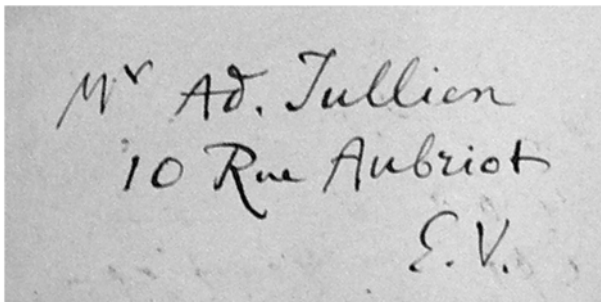 Mr Ad. Jullien
10 Rue Aubriot
E.V.